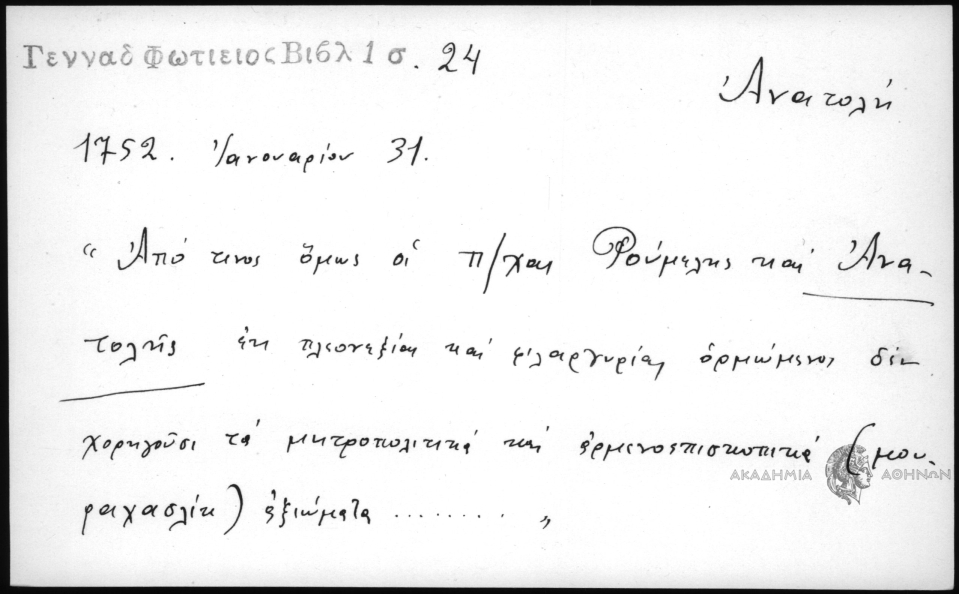 Γενναδ Φωτιειος Βιβλ 1 σ. 24
Ἀνατολή
1752. Ἰανουαρίου 31.
“ Ἀπό τινος ὅμως οἱ π/χαι Ῥούμελης καί Ἀνα-
τολῆς ἐκ πλεονεξίας καί φιλαργυρίας ὁρμώμενοι δέν
χορηγοῦσι τά μητροπολιτικά καί ἀρμενοεπισκοπικά (μου-
ραχασλίκ) ἀξιώματα ........ „
ΑΚΑΔΗΜΙΑ ΑΘΗΝΩΝ